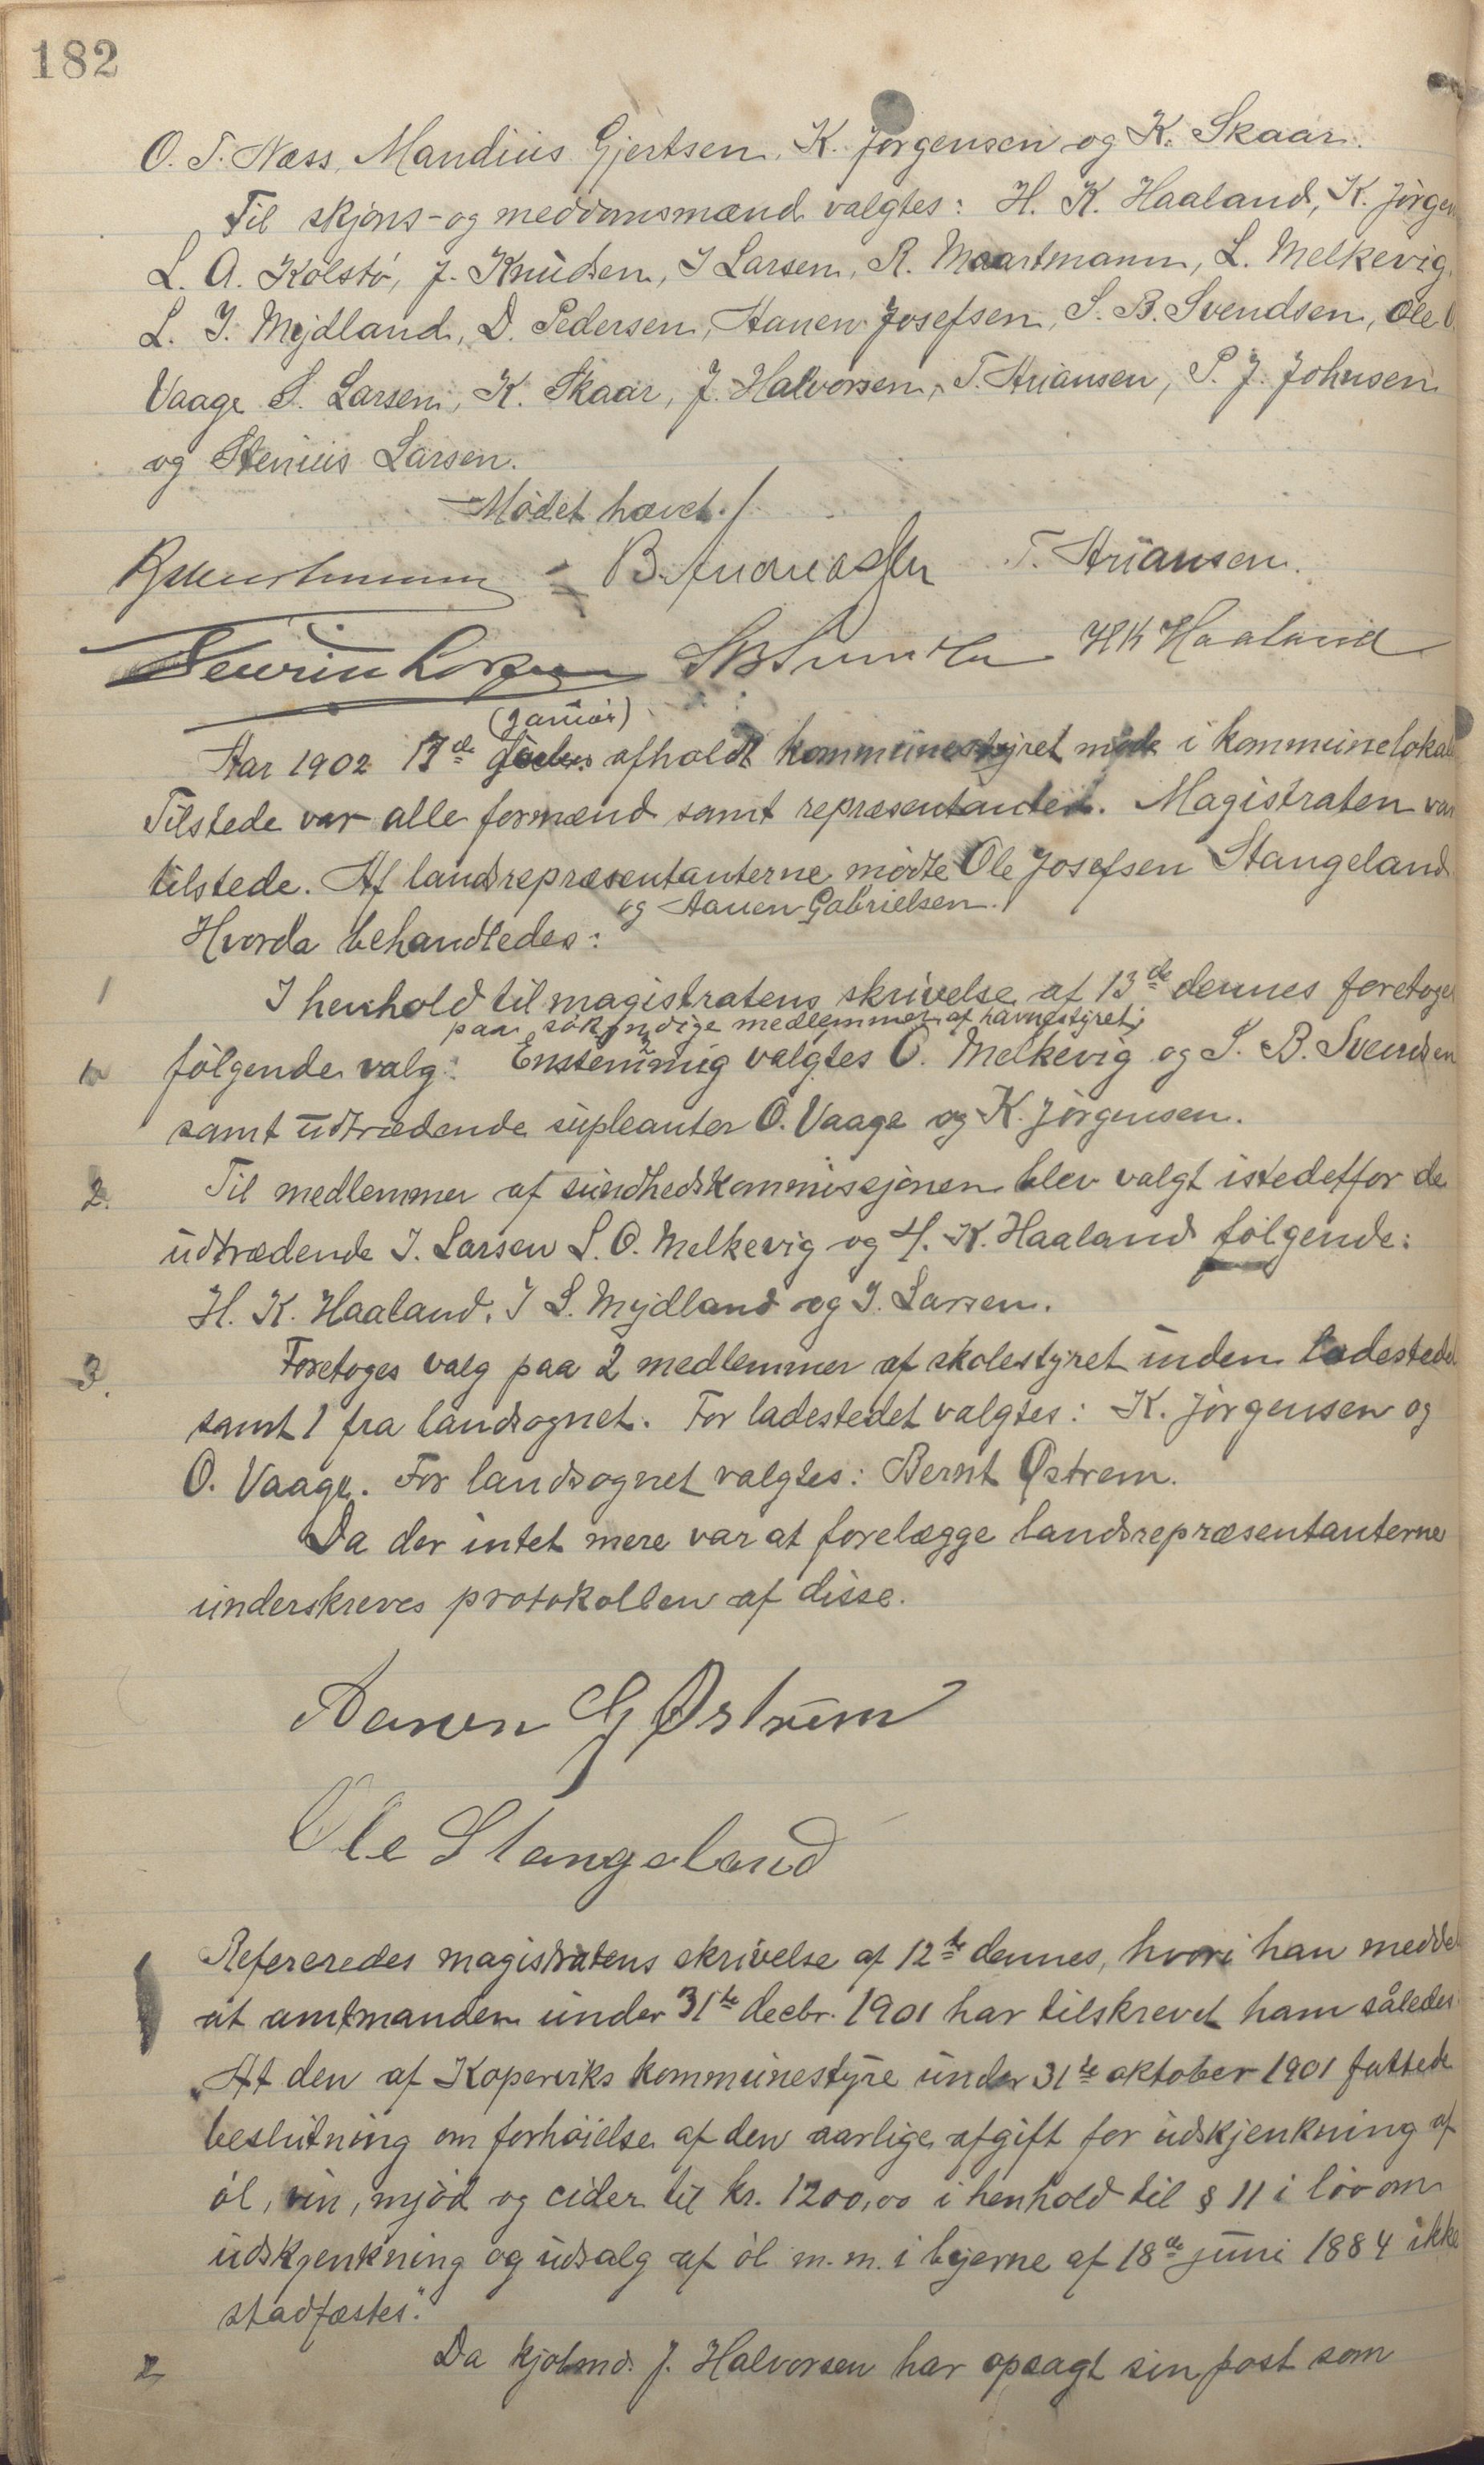 182
O. T. Næss, Mandius Gjertsen, K. Jørgensen og K. Skaar.
Til skjøns- og meddomsmænd valgtes: H. K. Haaland, K. Jørgen
L. A. Kolstø, J. Knudsen, I Larsen, R. Maartmann, L. Melkevig,
L. I. Mydland, D. Pedersen, Aanen Josefsen, S. B. Svendsen, Ole
Vaage S. Larsen, K. Skaar, J. Halvorsen, T. Ariansen, P. J. Johnsen
og Stenius Larsen.
Mødet hævet./
B. Andreassen T. Ariansen.
Severin Larsen SBSvendsen HK Haaland
(januar)
Aar 1902 17de afholdt kommunestyret møde i kommunelokal
Tilstede var alle formænd samt repræsentanter. Magistraten var
tilstede. Af landsrepræsentanterne mødte Ole Josefsen Stangeland
og Aanen Gabrielsen.
Hvorda behandledes:
1 I henhold til magistratens skrivelse af 13de dennes foretoges
paa søkyndige medlemmer af havnestyret;
følgende valg: Enstemmig valgtes O. Melkevig og S. B. Svendsen
samt udtrædende supleanter O. Vaage og K. Jørgensen.
2. Til medlemmer af sundhedskommissjonen blev valgt istedetfor de
udtrædende I. Larsen L. O. Melkevig og H. K. Haaland følgende:
H. K. Haaland, I L. Mydland og I. Larsen.
3. Foretoges valg paa 2 medlemmer af skolestyret inden ladestedet
samt 1 fra landsognet. For ladestedet valgtes: K. Jørgensen og
O. Vaage. For landsognet valgtes: Bernt Østrem.
Da der intet mere var at forelægge landsrepræsentanterne
underskreves protokollen af disse.
Aanen G Østrem
Ole Stangeland
1 Refereredes magistratens skrivelse af 12te dennes, hvori han meddel
at amtmanden under 31te decbr. 1901 har tilskrevet ham således:
"At den af Koperviks kommunestyre under 31te oktober 1901 fattede
beslutning om forhøielse af den aarlige afgift for udskjenkning af
øl, vin, mjød og cider til kr. 1200,00 i henhold til § 11 i lov om
udskjenkning og udsalg af øl m. m. i byerne af 18de juni 1884 ikke
stadfæstes."
2 Da kjøbmd. J. Halvorsen har opsagt sin post som